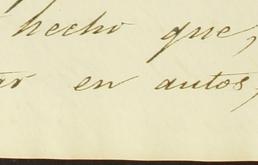 hecho que,
ar en autos,